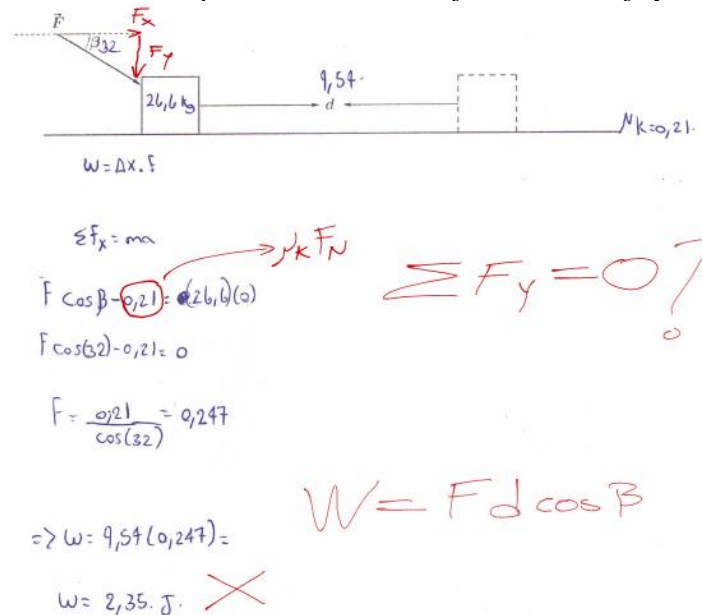 F⃗ Fx
β 32 Fy
26,6 kg 9,54 d μK=0,21.
W=Δx.f
Σfx=ma
F cosβ-0,21=(26,6)(0) μK FN ΣFy=0?
F cos(32)-0,21=0
F= 0,21/cos(32) = 0,247
W=Fd cosβ
=> W= 9,54(0,247)=
W= 2,35. J.